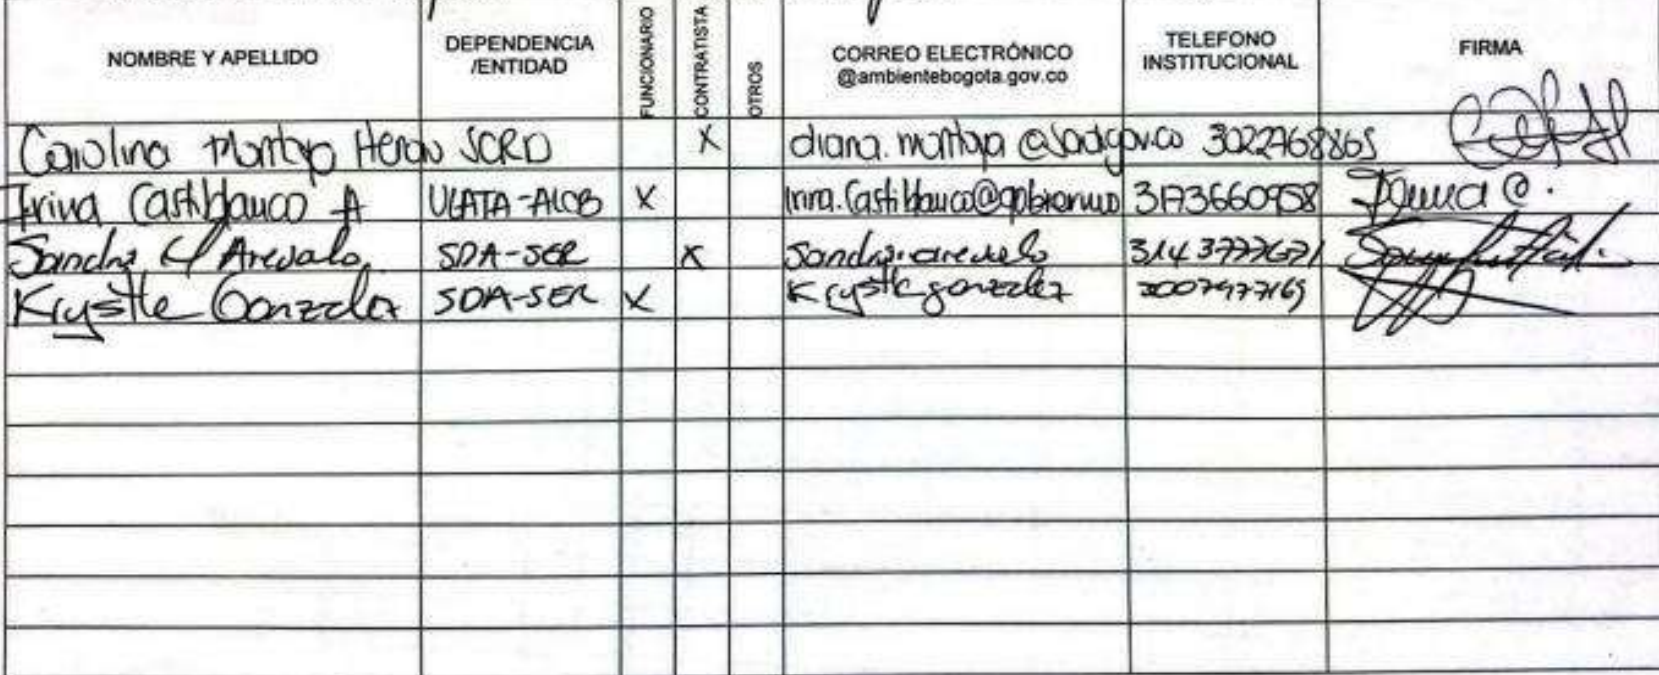 NOMBRE Y APELLIDO DEPENDENCIA /ENTIDAD FUNCIONARIO CONTRATISTA OTROS CORREO ELECTRÓNICO @ambientebogota.gov.co TELEFONO INSTITUCIONAL FIRMA
Carolina Montoya Henao SCRD X diana.montoya@scrd.gov.co 3022768865
Irina Castiblanco A ULATA-ALCB X 3173660958 Irina C.
Sandra Arevalo SDA-SER X Sandra.arevalo 3143777671
Krystle Gonzalez SDA-SER X Krystle gonzalez 3007977169